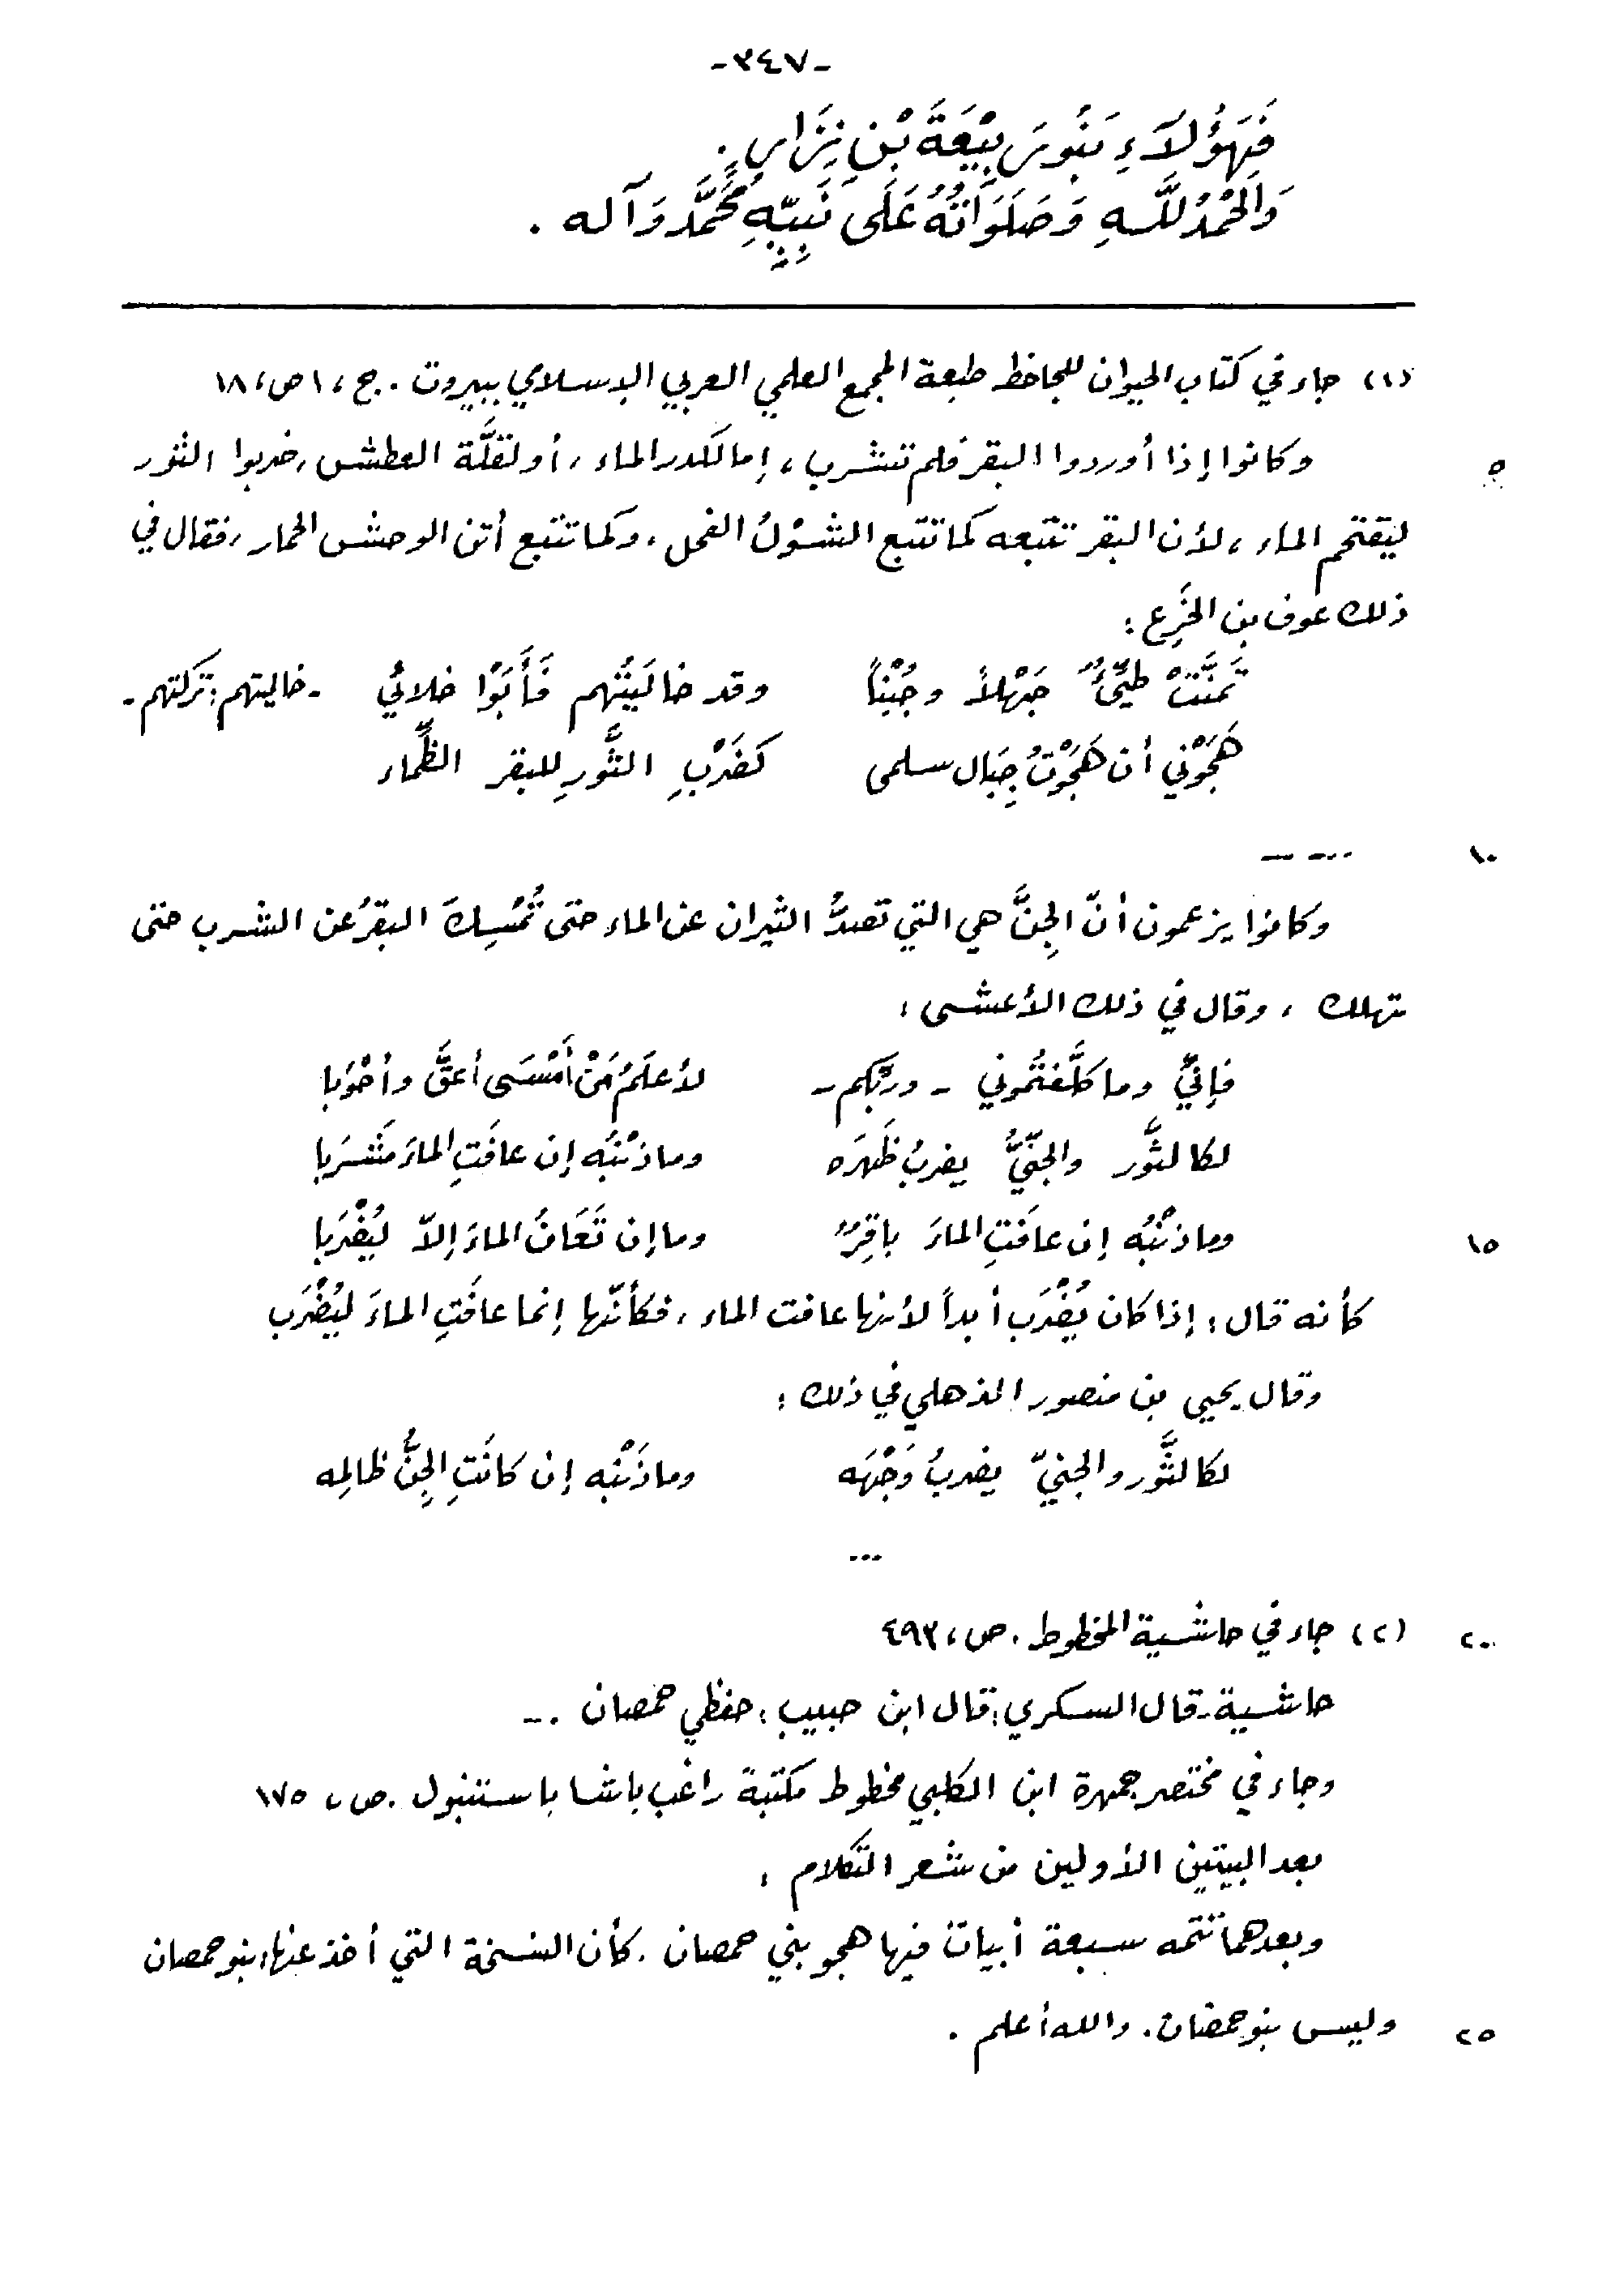 -٣٤٧-
فَهَؤُلَاَءِ بَنُو رَبِيْعَةَ بْنِ نِزَارٍ.
وَالحَمْدُ للَّهِ وَصَلَوَاتُهُ عَلَى نَبِيِّهِ مُحَمَّد وَآله .
(١) جاء في كتاب الحيوان للجاحظ طبعة المجمع العلمي العربي الإسلامي ببيروت . ج ، ١ ص ، ١٨
٥ وكانوا إذا أوردوا البقر فلم تشرب ، إما لكدر الماء ، أو لقلَّة العطش ، ضربوا الثور
ليقتحم الماء ، لأن البقر تتبعه كما تتبع الشوْلُ الفحل ، وكما تتبع أتن الوحش الحمار ، فقال في
ذلك عوف بن الخَرِع :
تَمَنَّتْ طيِّئٌ جَهْلاً وجُبْناً وقد خالَيْتُهم فَأَبَوْا خلائي - خاليتهم : تركتهم -
هَجَوْني أن هَجَوْتُ جِبَال سلمى كَضَرْبِ الثَّورِ للبقر الظِّماء
١٠ ... ...
وكانوا يزعمون أنّ الجِنَّ هي التي تصدُّ الثيران عن الماء حتى تُمْسِكَ البقرُ عن الشرب حتى
تهلك ، وقال في ذلك الأعشى :
فإنيِّ وما كلَّفتُموني - وربِّكم - لأعلَمُ مَنْ أَمْسَى أعقَّ وأحْوَبا
لكالثَّور والجنّيُّ يضربُ ظَهرَه وما ذنْبُه إن عافَتِ الماءَ مَشْرَبا
١٥ وما ذنْبُه إن عافَتِ الماءَ باقِرٌ وما إن تَعَافُ الماءَ إلاّ ليُضْرَبا
كأنه قال : إذا كان يُضْرَب أبداً لأنها عافت الماء ، فكأنّها إنما عافَتِ الماءَ ليُضْرَب
وقال يحيى بن منصور الذهلي في ذلك :
لكالثَّور والجنيّ يضربُ وَجْهَه وما ذَنْبُه إن كانَتِ الجِنُّ ظالِمه
...
٢٠ (٢) جاء في حاشية المخطوط . ص ، ٤٩٣
حاشية - قال السكري : قال ابن حبيب : حفظي حمصان .-
وجاء في مختصر جمهرة ابن الكلبي مخطوط مكتبة راغب باشا باستنبول . ص ، ١٧٥
بعد البيتين الأولين من شعر التكلام :
وبعدهما تتمه سبعة أبيات فيها هجو بني حمصان . كأن النسخة التي أخذ عنها ، بنو حمصان
٢٥ وليس بنو حمضان . والله أعلم .